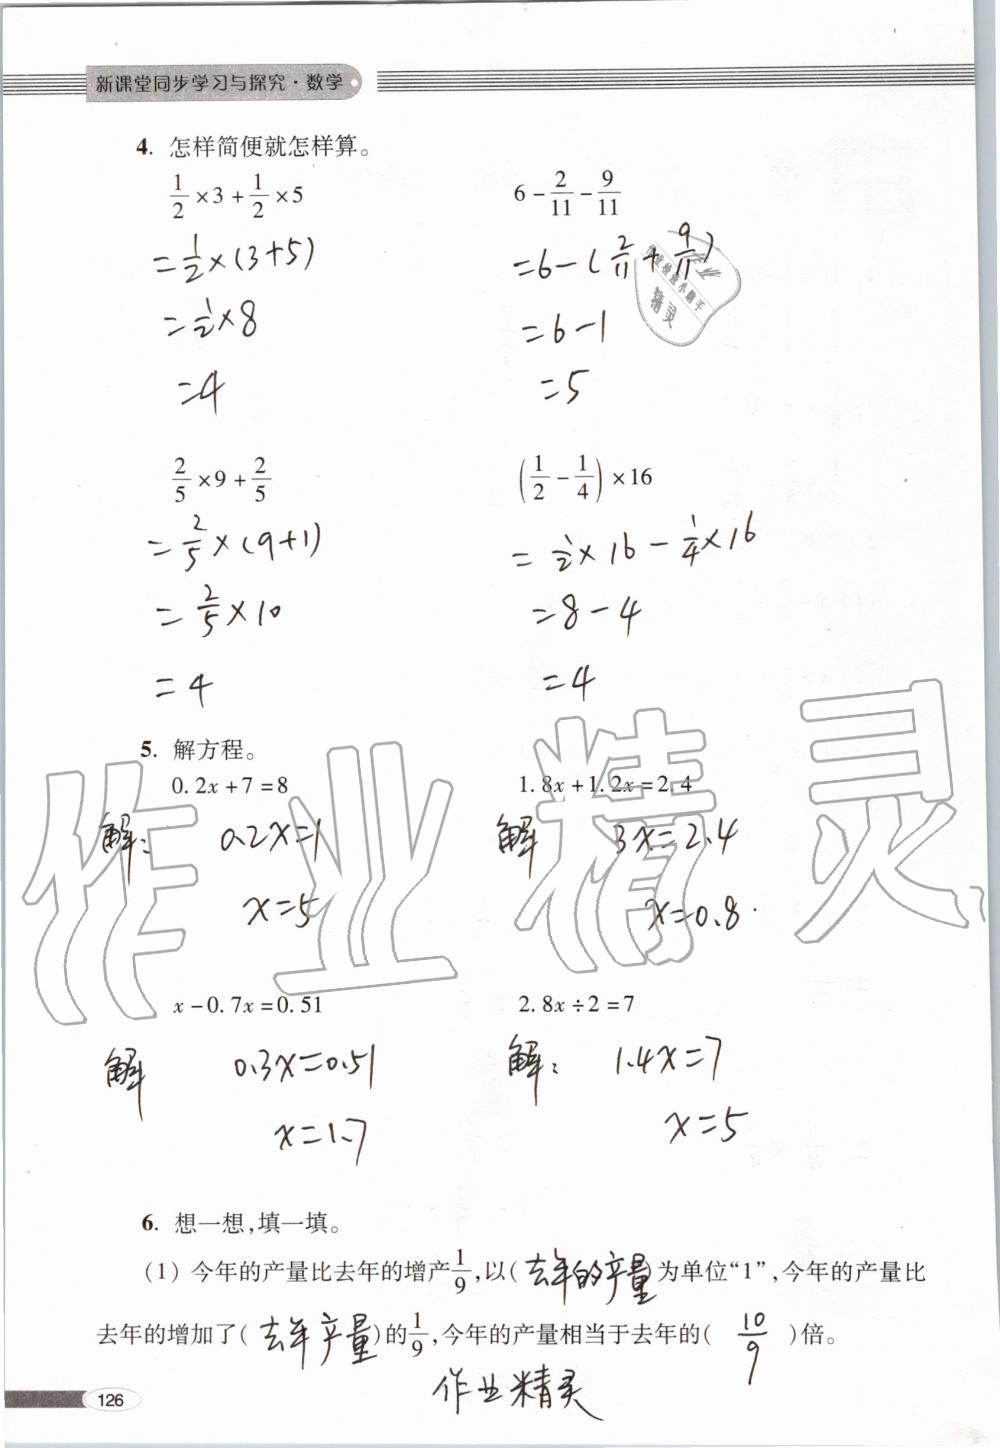 新课堂同步学习与探究·数学
4. 怎样简便就怎样算。
1/2×3+1/2×5
6-2/11-9/11
=1/2×(3+5)
=6-(2/11+9/11)
=1/2×8
=6-1
=4
=5
2/5×9+2/5
(1/2-1/4)×16
=2/5×(9+1)
=1/2×16-1/4×16
=2/5×10
=8-4
=4
=4
5. 解方程。
0.2x+7=8
1.8x+1.2x=2.4
解: 0.2x=1
解 3x=2.4
x=5
x=0.8
x-0.7x=0.51
2.8x÷2=7
解 0.3x=0.51
解: 1.4x=7
x=1.7
x=5
6. 想一想,填一填。
(1) 今年的产量比去年的增产1/9,以(去年的产量)为单位“1”,今年的产量比
去年的增加了(去年产量)的1/9,今年的产量相当于去年的( 10/9 )倍。
作业精灵
126
作业精灵